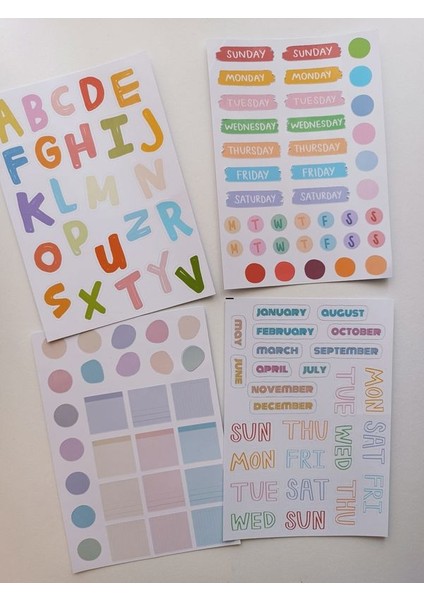 A B C D E
F G H I J
K L M N
O P U Z R
S X T Y V
SUNDAY SUNDAY
MONDAY MONDAY
TUESDAY TUESDAY
WEDNESDAY WEDNESDAY
THURSDAY THURSDAY
FRIDAY FRIDAY
SATURDAY SATURDAY
M T W T F S S
M T W T F S S
JANUARY AUGUST
MAY
FEBRUARY OCTOBER
MARCH SEPTEMBER
JUNE
APRIL JULY
NOVEMBER
DECEMBER
TUE MON
SUN THU WED SAT
MON FRI
TUE SAT THU FRI
WED SUN